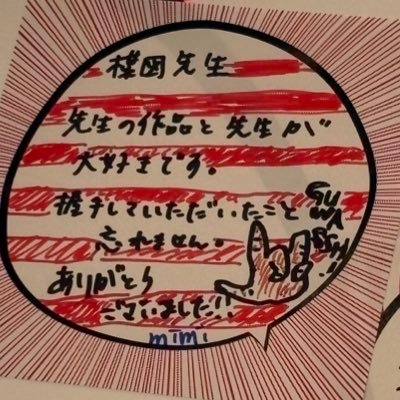 楳図先生
先生の作品と先生が
大好きです。
握手していただいたこと
忘れません。
ありがとう
ございました!!
GUWA
SSH!!
mimi